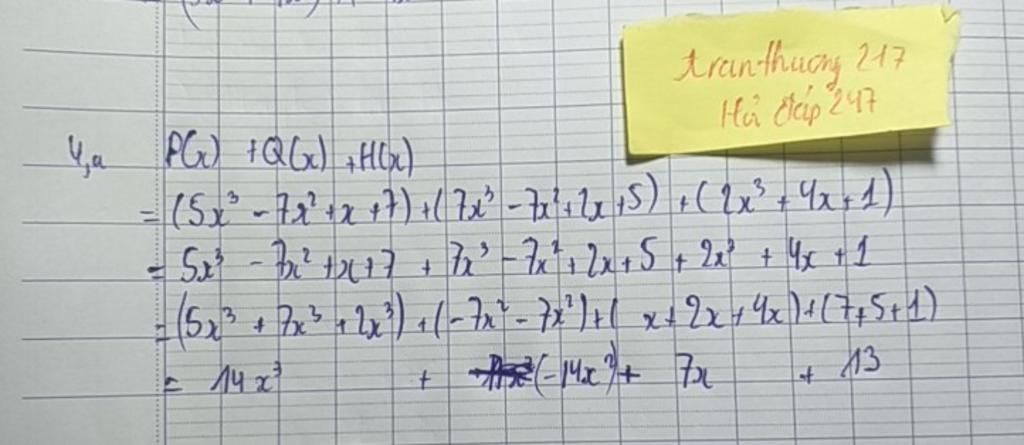 tranthuong 217
Hỏi đáp 247
4,a P(x) + Q(x) + H(x)
= (5x³ - 7x² + x + 7) + (7x³ - 7x² + 2x + 5) + (2x³ + 4x + 1)
= 5x³ - 7x² + x + 7 + 7x³ - 7x² + 2x + 5 + 2x³ + 4x + 1
= (5x³ + 7x³ + 2x³) + (-7x² - 7x²) + ( x + 2x + 4x) + (7 + 5 + 1)
= 14x³ + (-14x²) + 7x + 13